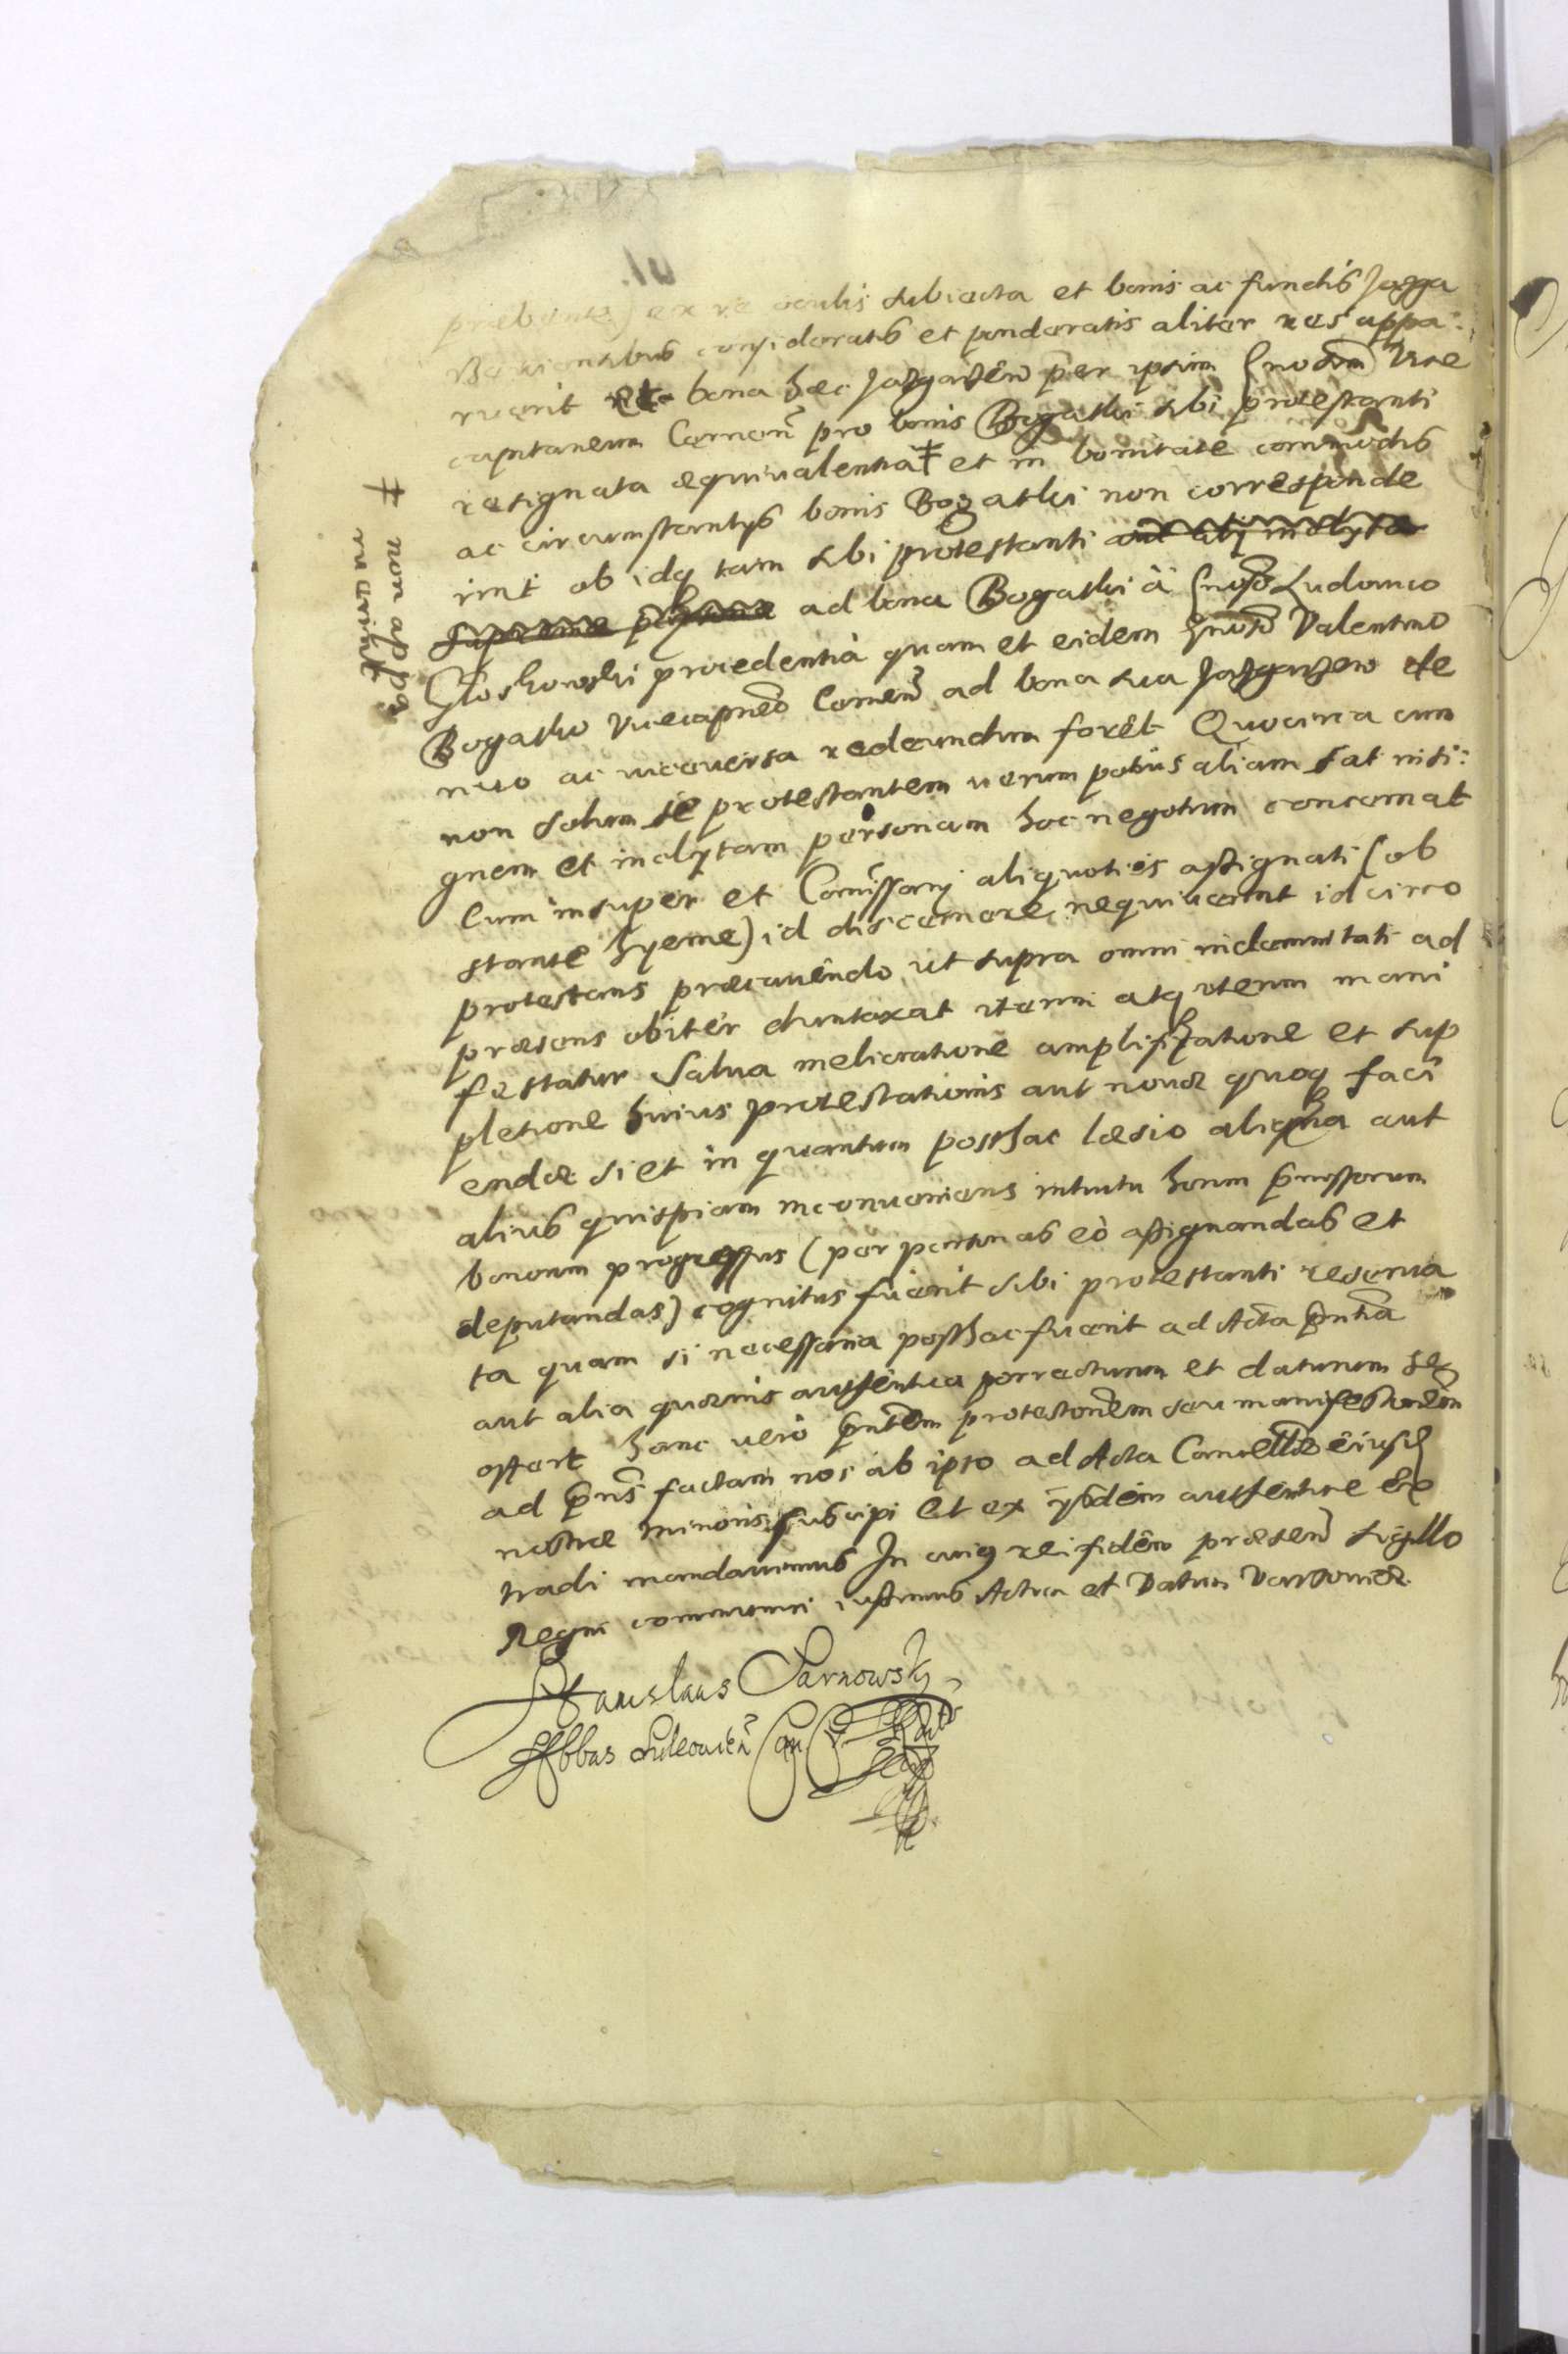 præbente) ex re oculis subiecta et bonis ac fundis Jazga
rzeviensibus consideratis et ponderatis aliter res appa:
ruerit et bona hæc Jazgarzew per ipsum Gnosum Vice
capitaneum Camen pro bonis Bogatki sibi protestanti
resignata æquivalentia ‡ et in bonitate commodis
ac circumstantys bonis Bogatki non corresponde
rint ob idq tam sibi protestanti aut alij inclyta
supremæ personæ ad bona Bogatki à Gnoso Ludovico
Gloskowski procedentia quam et eidem Gnoso Valentino
Bogatko vicecapneo Camen ad bona sua Jazgarzew de
nuo ac viceversa redeundum foret Quocirca cum
non solum se protestantem verum potius aliam sat insi:
gnem et inclytam personam hoc negotium concernat
Cum insuper et Comissary aliquoties assignati (ob
stante hyeme) id discernere nequiverint idcirco
protestans præcavendo ut supra omni indemnitati ad
præsens obiter duntaxat iterum atq iterum mani
festatur Salva melioratione amplificatione et sup
pletione huius protestationis aut novæ quoq faci
endæ si et in quantum posthac læsio aliqua aut
alius quispiam inconveniens intuitu horum præmissorum
bonorum progressus (per personas eò assignandas et
deputandas) cognitus fuerit sibi protestanti reserva
ta quam si necessaria posthac fuerit ad Acta pntia
aut alia quævis authentica porrecturum et daturum se
offert hanc vero pntem protestonem seu manifestonem
ad pns factam nos ab ipso ad Acta Cancellæ eiusd
nostræ minoris suscipi et ex ysdem authentice ex
tradi mandavimus In cuius rei fidem præsen sigillo
Regni communiri iussimus Actum et Datum Varsoviæ
‡ non appa
ruerint
Stanislaus Sarnowsky
Abbas Suleovien Can